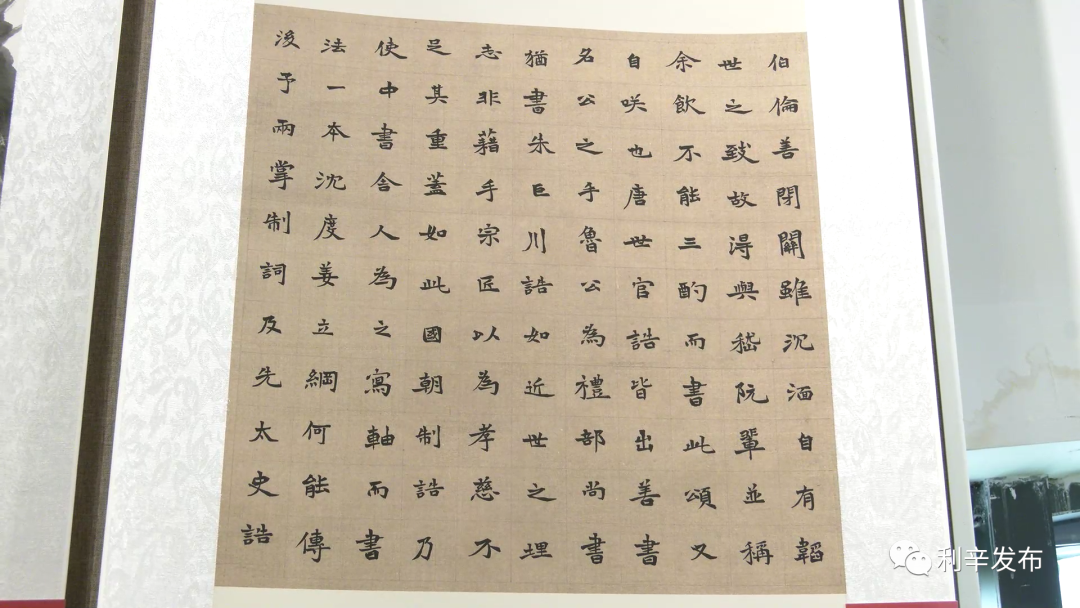 伯倫善閉關雖沉湎自有韜
世之致故得與嵇阮輩並稱
余飲不能三酌而書此頌又
自咲也唐世官誥皆出善書
名公之手魯公為禮部尚書
猶書朱巨川誥如近世之埋
志非藉手宗匠以為孝慈不
足其重蓋如此國朝制誥乃
使中書舍人為之寫軸而書
法一本沈度姜立綱何能傳
後予兩掌制詞及先太史誥
利辛发布